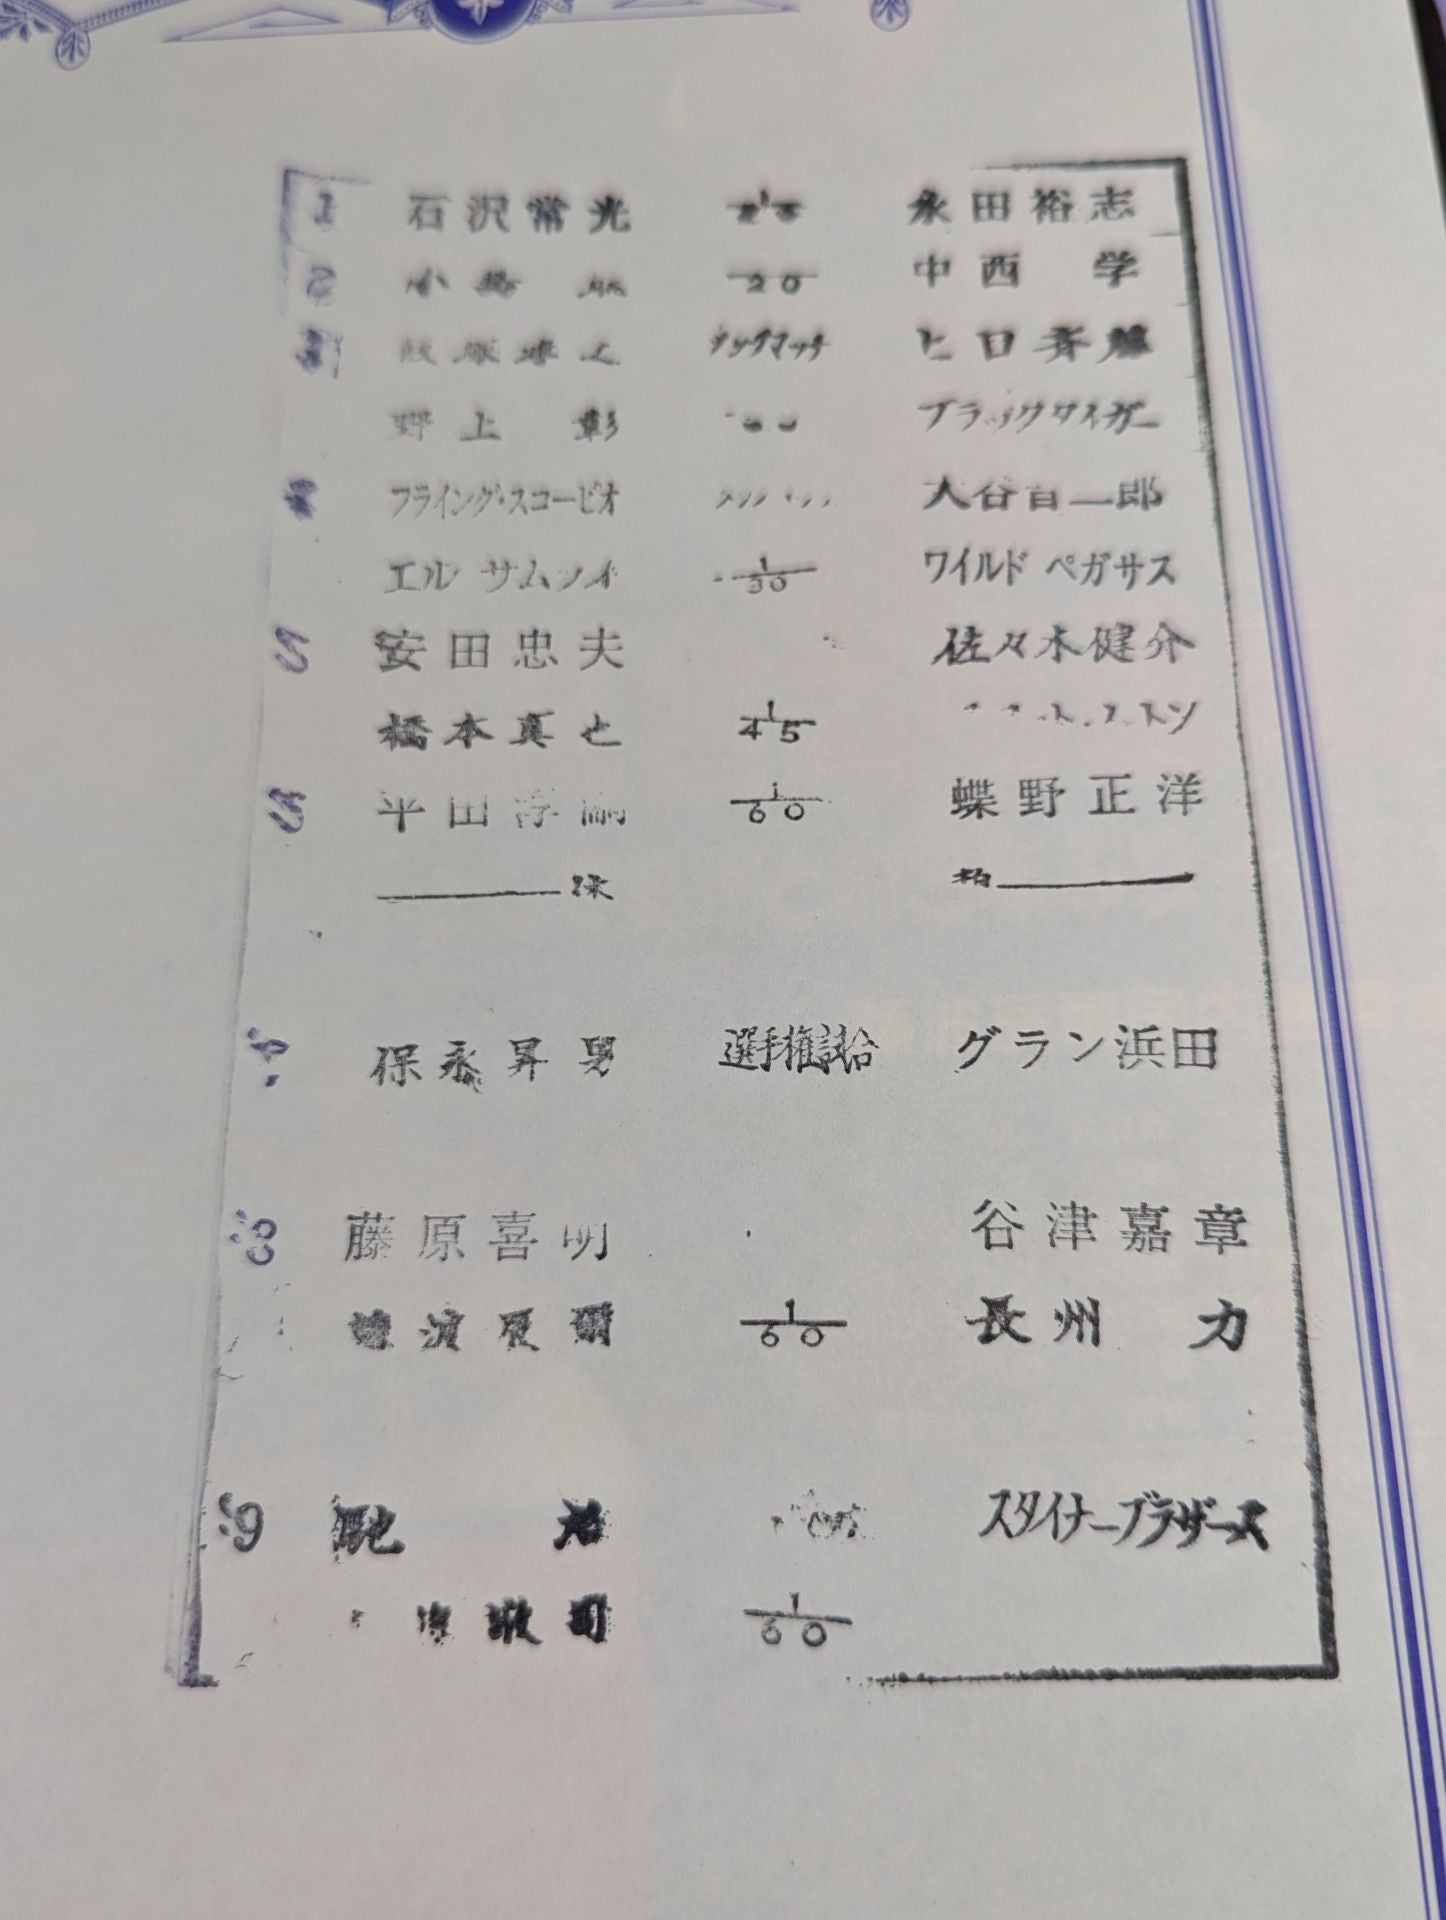 1 石沢常光 永田裕志
2 小島 1/20 中西 学
3 タッグマッチ ヒロ斉藤
野上 彰 ブラックタイガー
フライング・スコーピオ 大谷晋二郎
エル サムライ 1/30 ワイルド ペガサス
5 安田忠夫 佐々木健介
橋本真也 1/45
平田淳嗣 1/60 蝶野正洋
休
保永昇男 選手権試合 グラン浜田
8 藤原喜明 谷津嘉章
1/60 長州 力
9 馳 浩 スタイナーブラザーズ
1/60